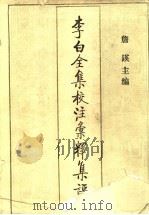 詹鍈主編
李白全集校注彙釋集評